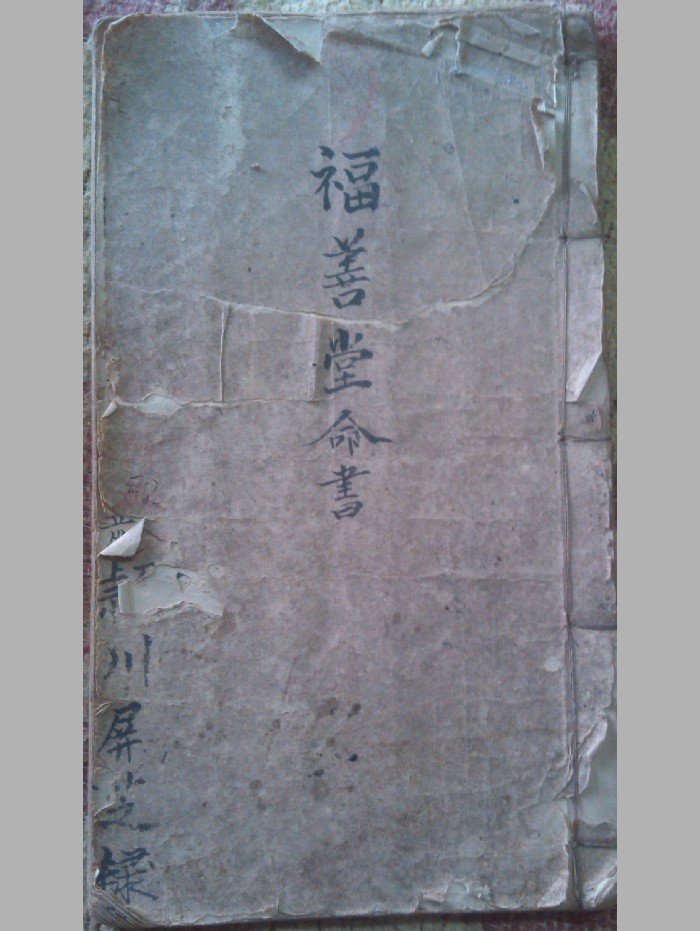 福善堂命書
川屏芝録